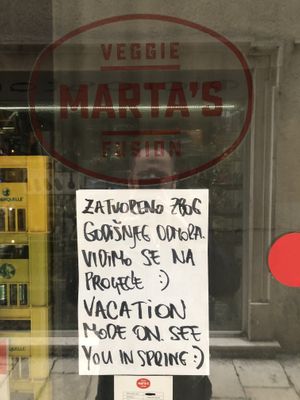 VEGGIE
MARTA'S
FUSION
ZATVORENO ZBOG
GODIŠNJEG ODMORA.
VIDIMO SE NA
PROLJEĆE :)
VACATION
MODE ON. SEE
YOU IN SPRING :)